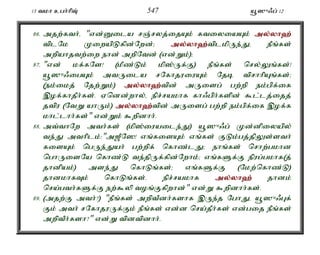 13 வமா உபர்ரிஃ 547 யூஸுஃப் 12
86. அதற்கவர், "என்னுடைய சஞ்சலத்தையும் கவலையையும் அல்லாஹ்
விடமே முறையிடுகின்றேன்; அல்லாஹ்விடமிருந்து, நீங்கள்
அறியாதவற்றை நான் அறிவேன் (என்றும்):
87. "என் மக்களே! (மீண்டும் மிஸ்ருக்கு) நீங்கள் செல்லுங்கள்!
யூஸுஃபையும் அவருடைய சகோதரரையும் தேடி விசாரியுங்கள்;
(நம்மைத் தேற்றும்) அல்லாஹ்வின் அருளைப் பற்றி நம்பிக்கை
இழக்காதீர்கள். ஏனென்றால், நிச்சயமாக காஃபிர்களின் கூட்டத்தைத்
தவிர (வேறு யாரும்) அல்லாஹ்வின் அருளைப் பற்றி நம்பிக்கை இழக்க
மாட்டார்கள்" என்றும் கூறினார்.
88. அவ்வாறே அவர்கள் (மிஸ்ரையடைந்து) யூஸுஃப் முன்னிலையில்
வந்து அவரிடம்:"அஜீஸே! எங்களையும் எங்கள் குடும்பத்திலுள்ளவர்
களையும் பெருந்துயர் பற்றிக் கொண்டது; நாங்கள் சொற்பமான
பொருளையே கொண்டு வந்திருக்கின்றோம்; எங்களுக்கு நிரப்பமாக(த்
தானியம்) அளந்து கொடுங்கள்; எங்களுக்கு (மேற்கொண்டு)
தானமாகவும் கொடுங்கள். நிச்சயமாக அல்லாஹ் தானம்
செய்பவர்களுக்கு நற்கூலி வழங்குகிறான்" என்று கூறினார்கள்.
89. (அதற்கு அவர்:) "நீங்கள் அறிவீனர்களாக இருந்த போது, யூஸுஃபுக்
கும் அவர் சகோதரருக்கும் நீங்கள் என்ன செய்தீர்கள் என்பதை நீங்கள்
அறிவீர்களா?" என்று வினவினார்.